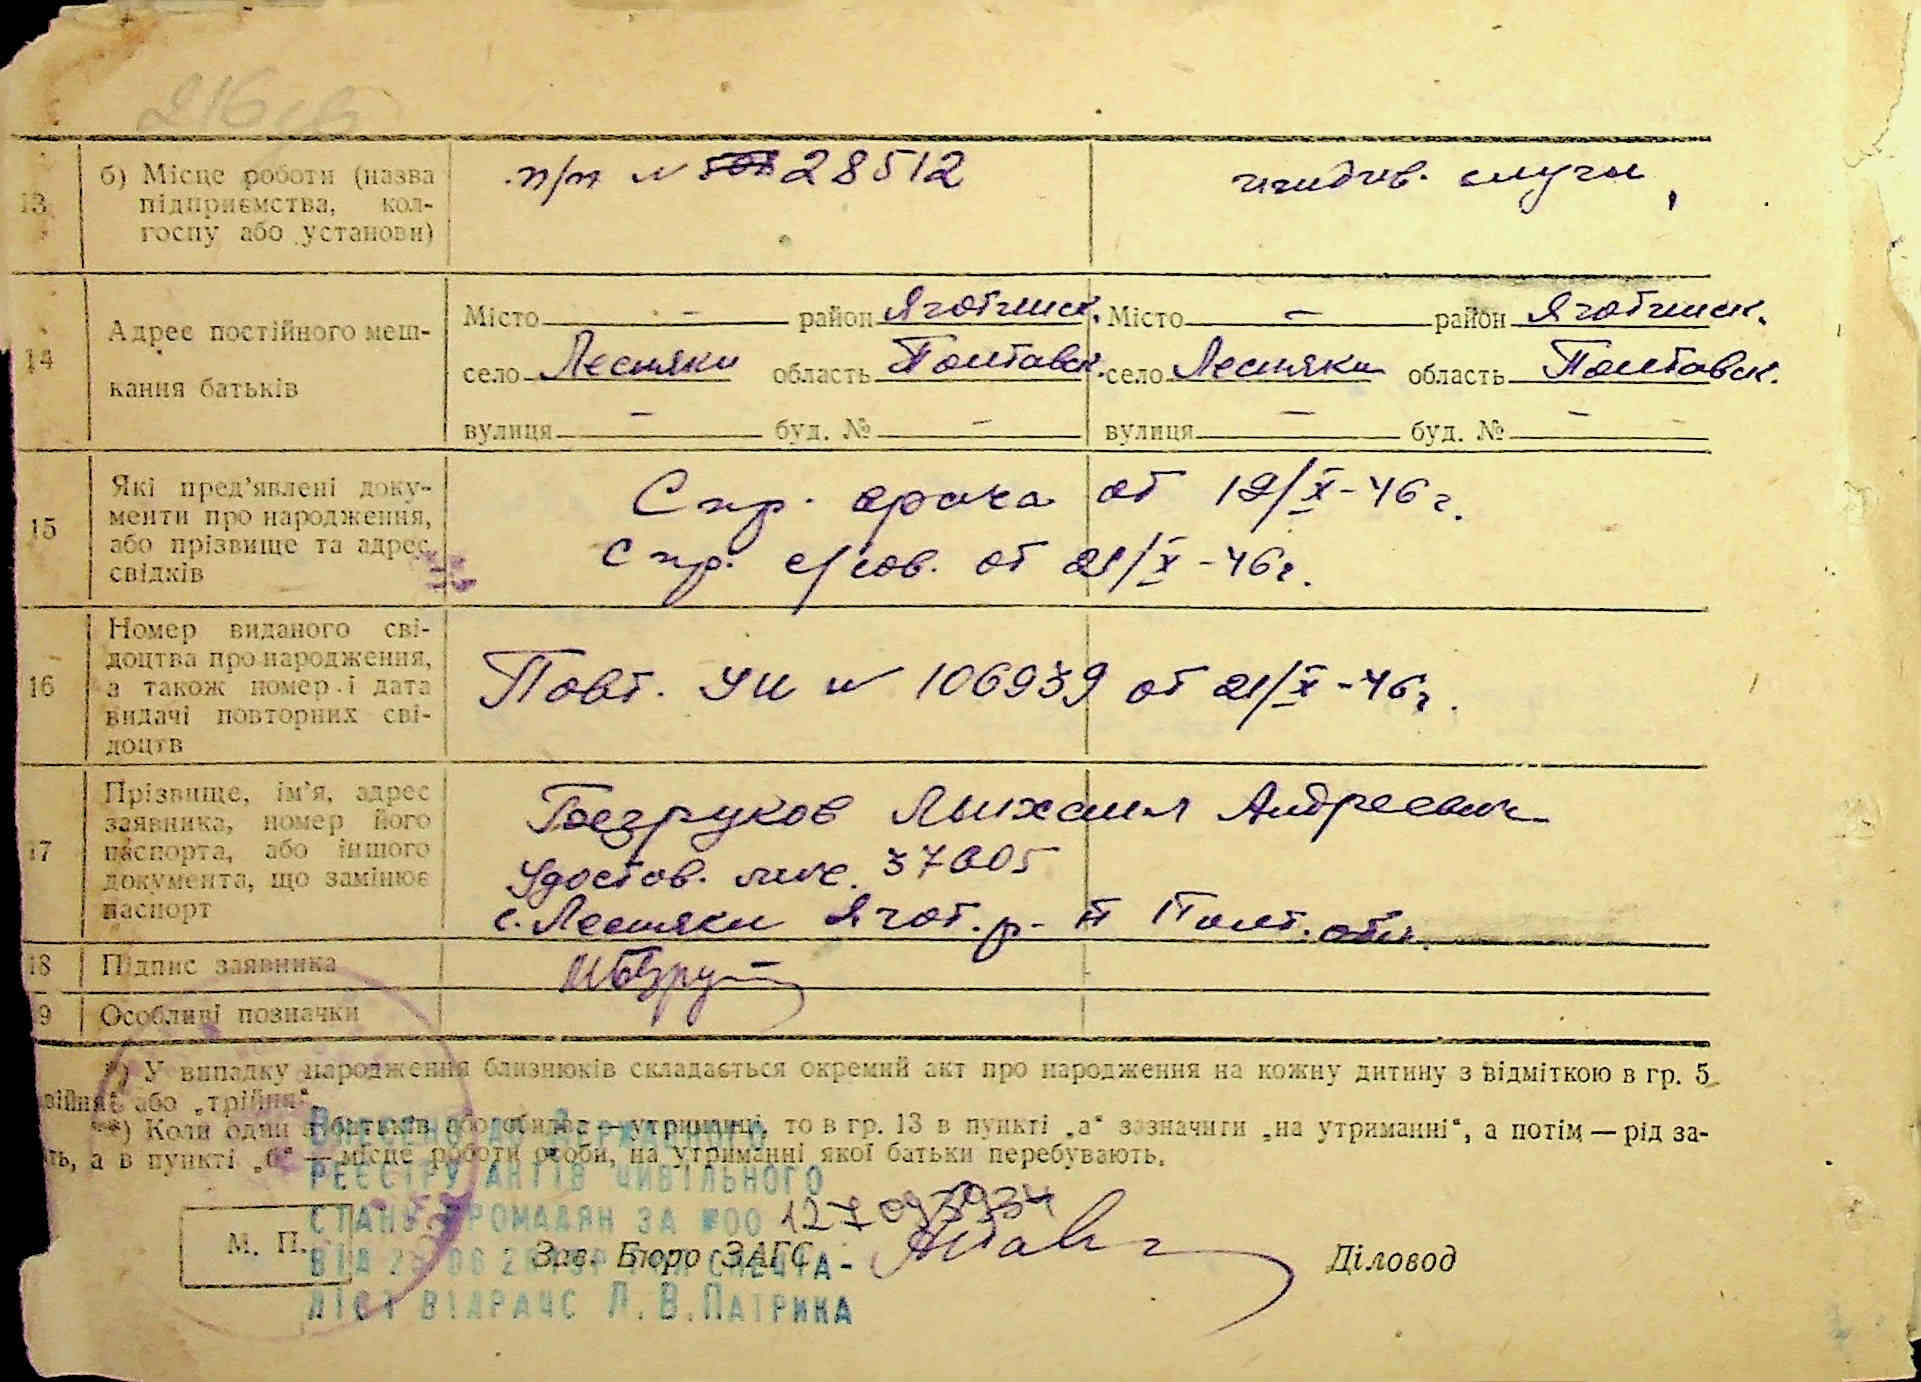 13
б) Місце роботи (назва
підприємства, кол-
госпу або установи)
п/п N 28512
индив. случ
14
Адрес постійного меш-
кання батьків
Місто — район Яготинск.
село Лесняки область Полтавск.
вулиця — буд. № —
Місто — район Яготинск.
село Лесняки область Полтавск.
вулиця — буд. № —
15
Які пред'явлені доку-
менти про народження,
або прізвище та адрес
свідків
Спр. врача от 12/X-46 г.
Спр. с/сов. от 21/X-46г.
16
Номер виданого сві-
доцтва про народження,
а також номер і дата
видачі повторних сві-
доцтв
Повт. УИ N 106939 от 21/X-46г.
17
Прізвище, ім'я, адрес
заявника, номер його
паспорта, або іншого
документа, що замінює
паспорт
Безруков Михаил Андреевич
Удостов. лич. 37005
с. Лесняки Ягот. р-н Полт. обл.
18
Підпис заявника
9
Особливі позначки
*) У випадку народження близнюків складається окремий акт про народження на кожну дитину з відміткою в гр. 5
або „трійня“.
**) Коли один з батьків або обидва — утриманці, то в гр. 13 в пункті „а“ зазначити „на утриманні“, а потім — рід за-
ть, а в пункті „б“ — місце роботи особи, на утриманні якої батьки перебувають.
ВНЕСЕНО ДО ДЕРЖАВНОГО
РЕЄСТРУ АКТІВ ЦИВІЛЬНОГО
СТАНУ ГРОМАДЯН ЗА №00
М. П.
Зав. Бюро ЗАГС
Діловод
ЛІСТ ВІДРАЦС Л.В.ПАТРИКА